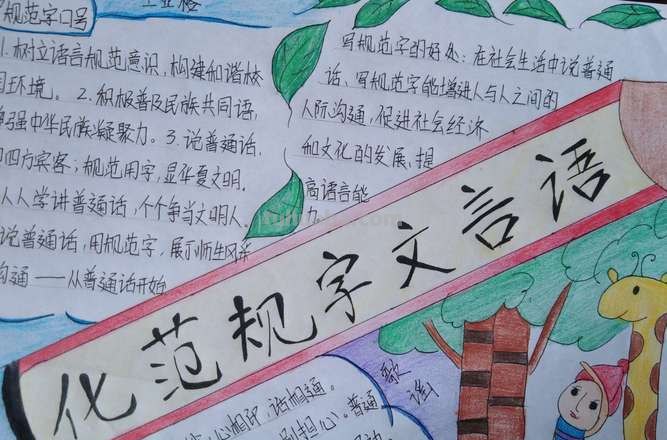 规范字口号
1. 树立语言规范意识，构建和谐校
园环境。2. 积极普及民族共同语，
增强中华民族凝聚力。3. 说普通话，
迎四方宾客；规范用字，显华夏文明。
人人学讲普通话，个个争当文明人。
说普通话，用规范字，展示师生风采
沟通——从普通话开始
写规范字的好处：在社会生活中说普通
话、写规范字能增进人与人之间的
人际沟通，促进社会经济
和文化的发展、提
高语言能
力
语言文字规范化
歌谣
心相印，话相通。
担心。普通